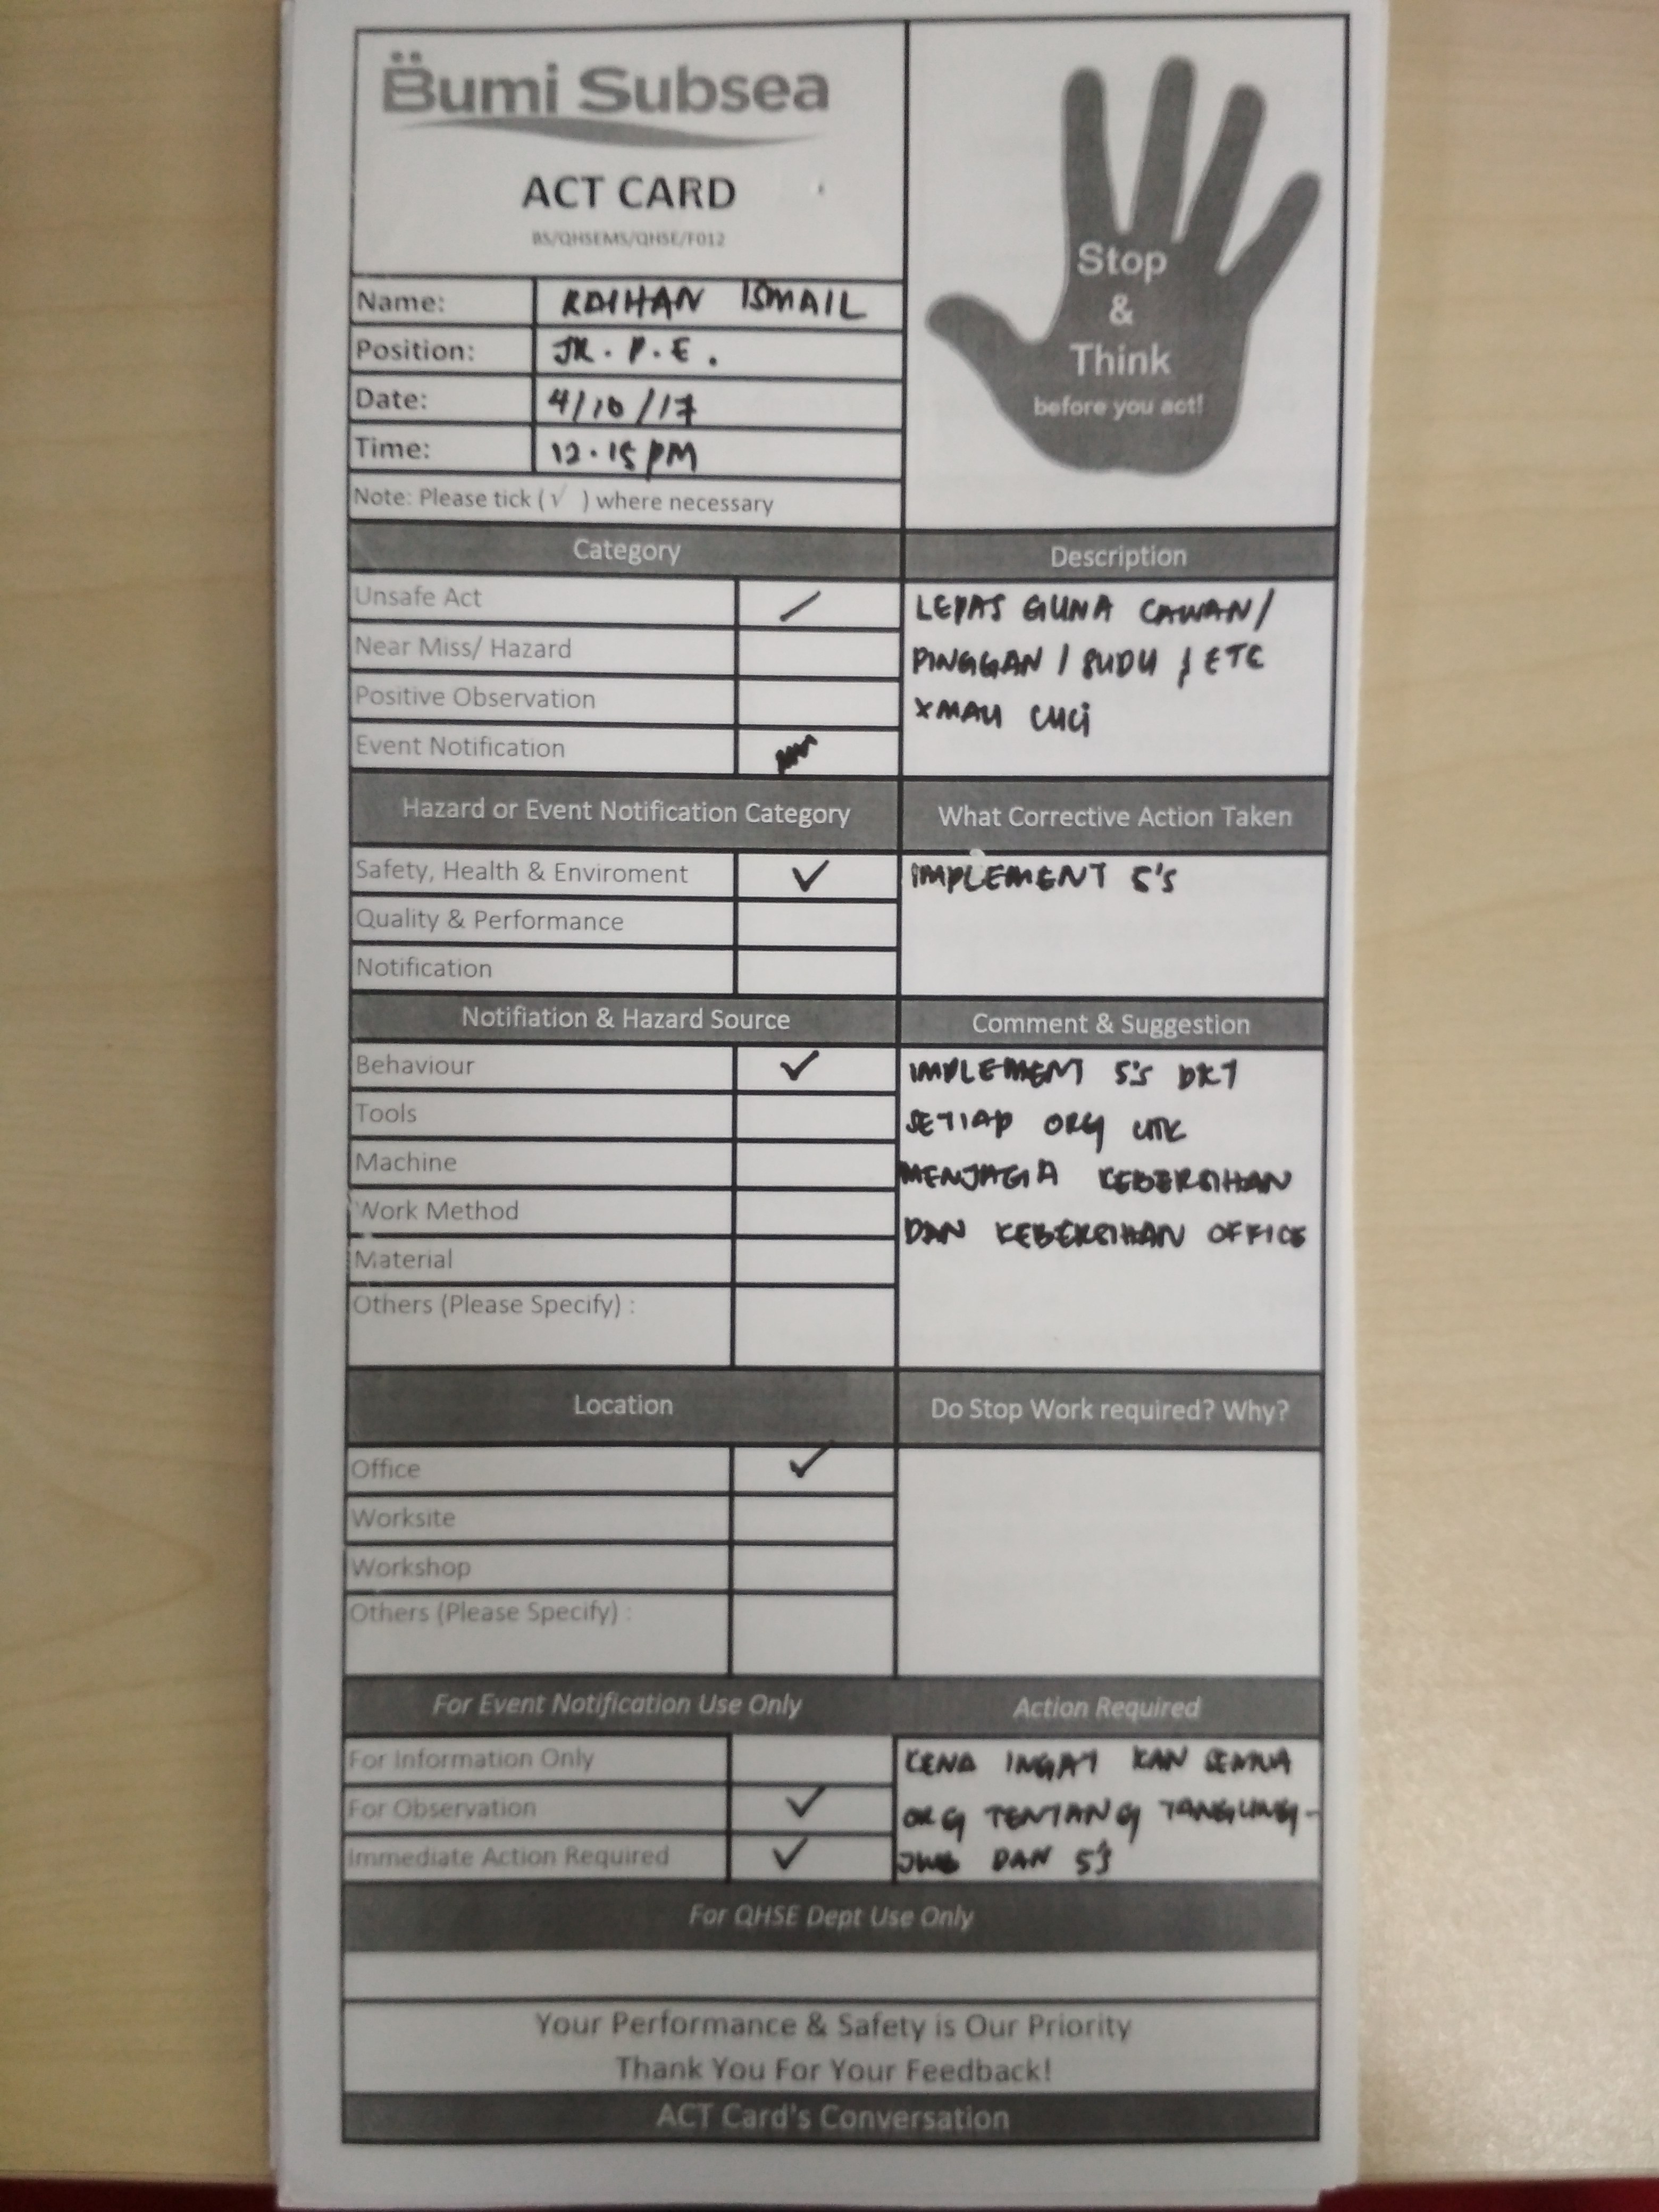 Bumi Subsea
ACT CARD
BS/QHSEMS/QHSE/F012
Stop
&
Think
before you act!
Name: RAIHAN ISMAIL
Position: JR. P.E.
Date: 4/10/17
Time: 12.15 PM
Note: Please tick (√ ) where necessary
Category
Unsafe Act
Near Miss/ Hazard
Positive Observation
Event Notification
Description
LEPAS GUNA CAWAN/
PINGGAN / SUDU / ETC
XMAU CUCI
Hazard or Event Notification Category
Safety, Health & Enviroment ✓
Quality & Performance
Notification
What Corrective Action Taken
IMPLEMENT 5'S
Notifiation & Hazard Source
Behaviour ✓
Tools
Machine
Work Method
Material
Others (Please Specify) :
Comment & Suggestion
IMPLEMENT 5'S DKT
SETIAP ORG UTK
MENJAGA KEBERSIHAN
DAN KEBERSIHAN OFFICE
Location
Office ✓
Worksite
Workshop
Others (Please Specify) :
Do Stop Work required? Why?
For Event Notification Use Only
For Information Only
For Observation ✓
Immediate Action Required ✓
Action Required
KENA INGAT KAN SEMUA
ORG TENTANG TANGUNG-
JWB DAN 5'S
For QHSE Dept Use Only
Your Performance & Safety is Our Priority
Thank You For Your Feedback!
ACT Card's Conversation